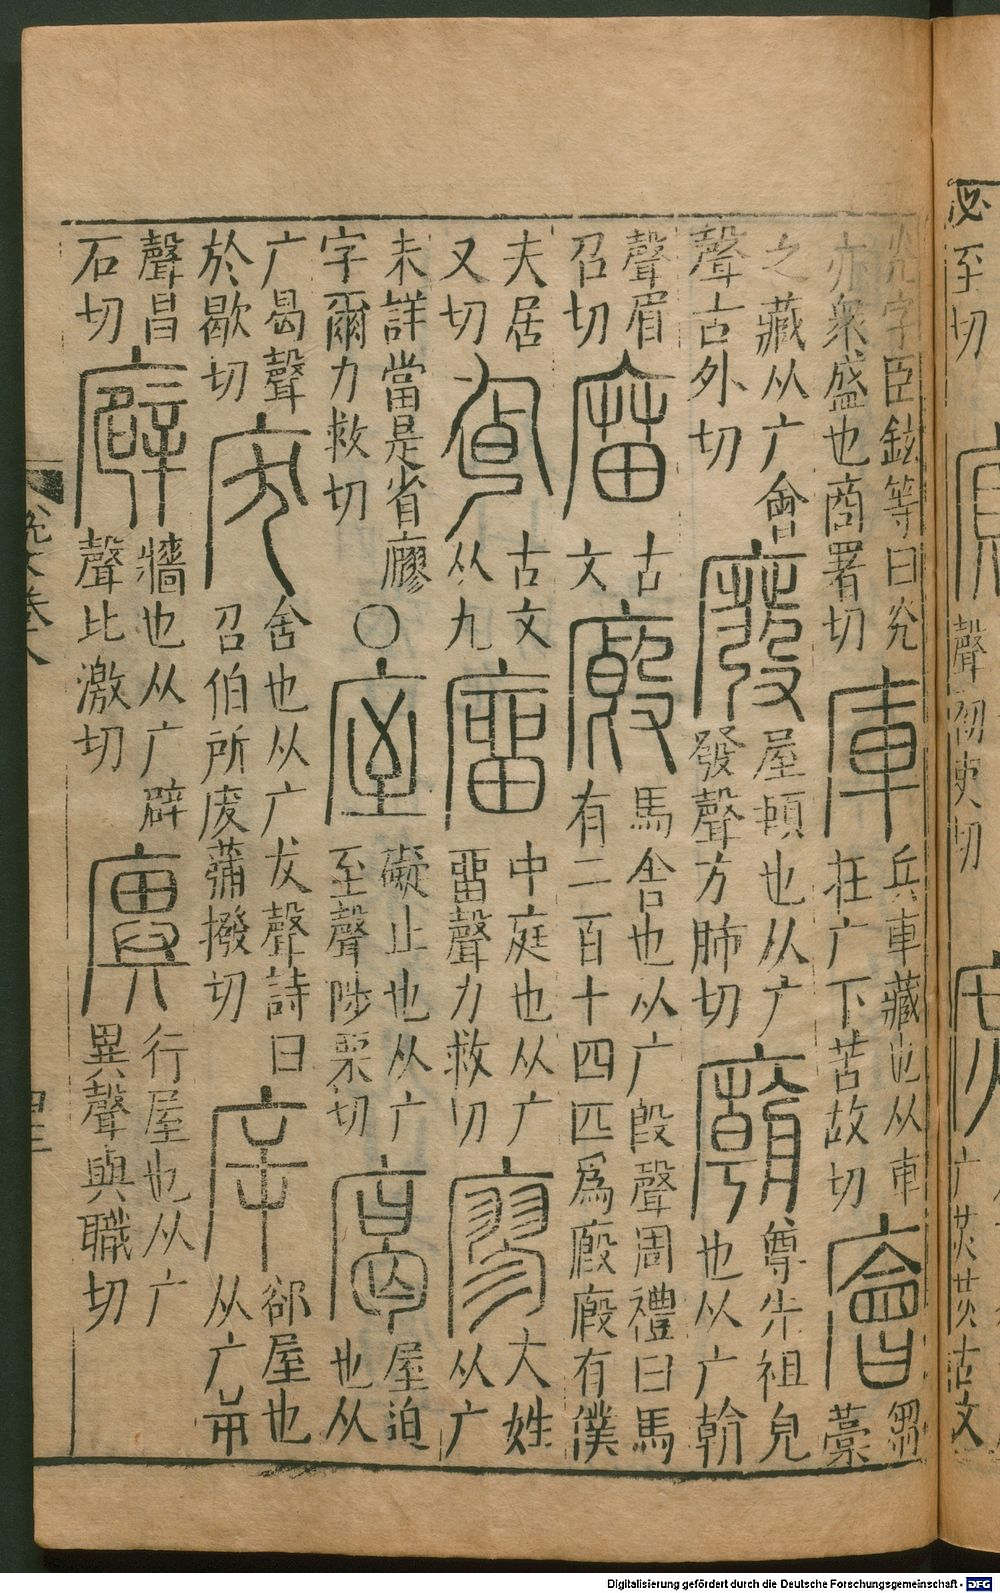 必至切
聲初吏切
光字臣鉉等曰光
亦衆盛也商署切
庫
兵車藏也从車
在广下苦故切
廥
芻
藁
之藏从广會
聲古外切
廢
屋頓也从广
發聲方肺切
廟
尊先祖皃
也从广朝
聲眉
召切
庿
古
文
廄
馬舍也从广㲃聲周禮曰馬
有二百十四匹爲廄廄有僕
夫居
又切
古文
从九
廇
中庭也从广
畱聲力救切
廖
大姓
从广
未詳當是省廫
字爾力救切
○
庢
礙止也从广
至聲陟栗切
廅
屋迫
也从
广曷聲
於歇切
废
舍也从广犮聲詩曰
召伯所废蒲撥切
㡿
郤屋也
从广屰
聲昌
石切
廦
牆也从广辟
聲比激切
廙
行屋也从广
異聲與職切
Digitalisierung gefördert durch die Deutsche Forschungsgemeinschaft - DFG